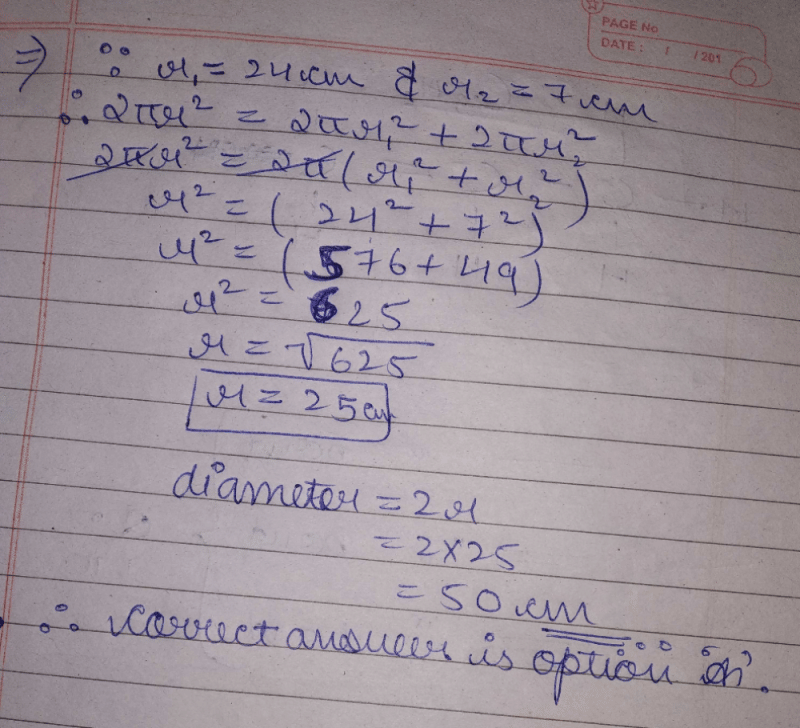 PAGE No
DATE : / / 201
⇒ ∵ r₁ = 24 cm & r₂ = 7 cm
∴ 2πr² = 2πr₁² + 2πr₂²
2πr² = 2π(r₁² + r₂²)
r² = (24² + 7²)
r² = (576 + 49)
r² = 625
r = √625
r = 25 cm
diameter = 2r
= 2×25
= 50 cm
∴ correct answer is option